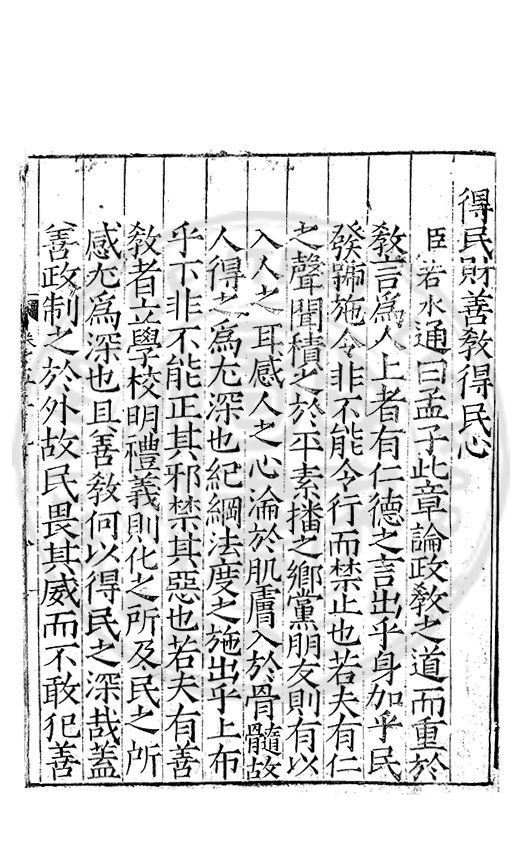 得民財善敎得民心
臣若水通曰孟子此章論政敎之道而重於
敎言爲人上者有仁德之言出乎身加乎民
發號施令非不能令行而禁止也若夫有仁
之聲聞積之於平素播之鄉黨朋友則有以
入人之耳感人之心淪於肌膚入於骨髓故
人得之爲尤深也紀綱法度之施出乎上布
乎下非不能正其邪禁其惡也若夫有善
敎者立學校明禮義則化之所及民之所
感尤爲深也且善敎何以得民之深哉蓋
善政制之於外故民畏其威而不敢犯善